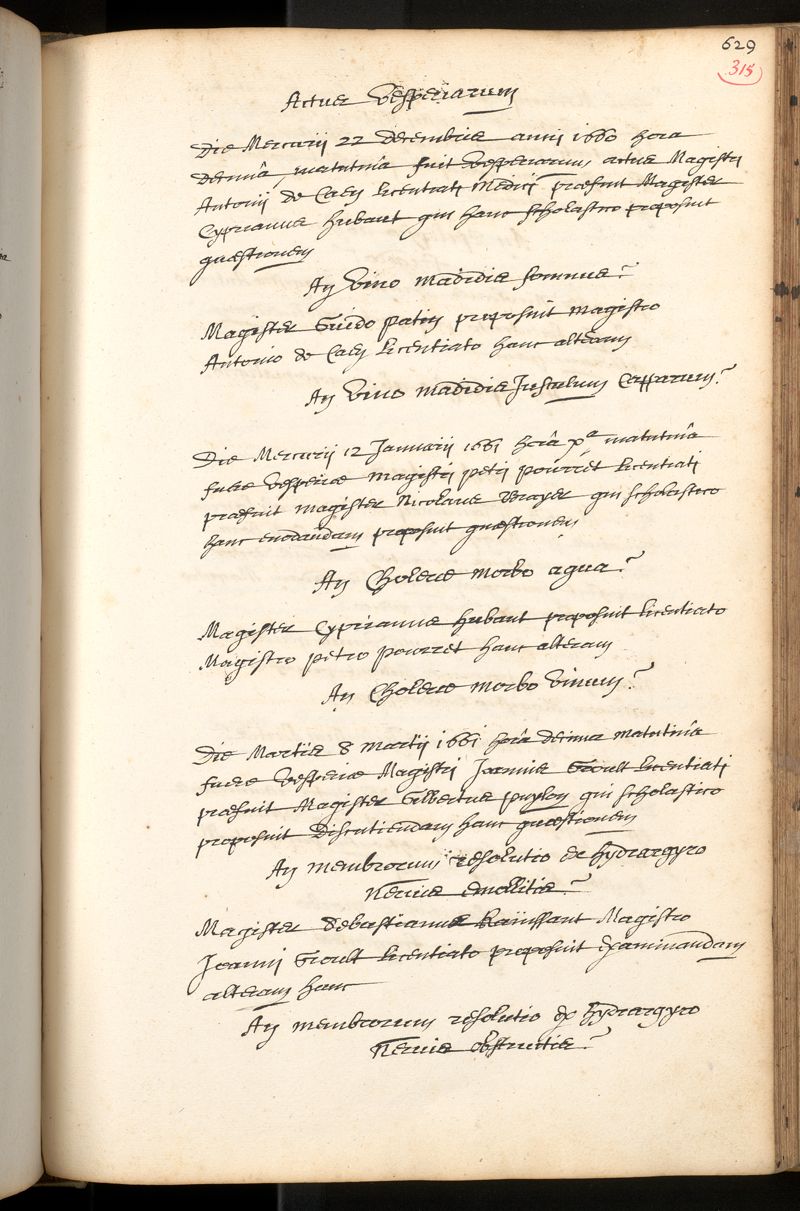 629
315
Actus Vesperiarum
Die Mercurii 22 decembris anni 1660 hora
decimâ, matutinâ fuit Vesperiarum actus Magistri
Antonii de Caen licentiati Medici præfuit Magister
Cyprianus hubaut qui hanc scholastico proposuit
quæstionem
An Vino madidis somnus?
Magister Guido patin proposuit magistro
Antonio de Caen licentiato hanc alteram
An Vino madidis Jusculum Capparum?
Die Mercurii 12 Januarii 1661 horâ xª matutinâ
fuere Vesperiæ magistri petri pourret licentiati
præfuit magister Nicolaus Brayer qui scholastico
hanc enodandam proposuit quæstionem
An Choleræ morbo aqua?
Magister Cyprianus hubaut proposuit licentiato
Magistro petro pourret hanc alteram
An Choleræ morbo Vinum?
Die Martis 8 martii 1661 horâ decima matutinâ
fuere Vesperiæ Magistri Joannis licentiati
præfuit Magister Gilbertus puylon qui scholastico
proposuit Discutiendam hanc quæstionem
An membrorum resolutio ex hydrargyro
Nervis emollitis?
Magister Sebastianus Rainssant Magistro
Joanni licentiato proposuit Examinandam
alteram hanc
An membrorum resolutio ex hydrargyro
Nervis obstructis?